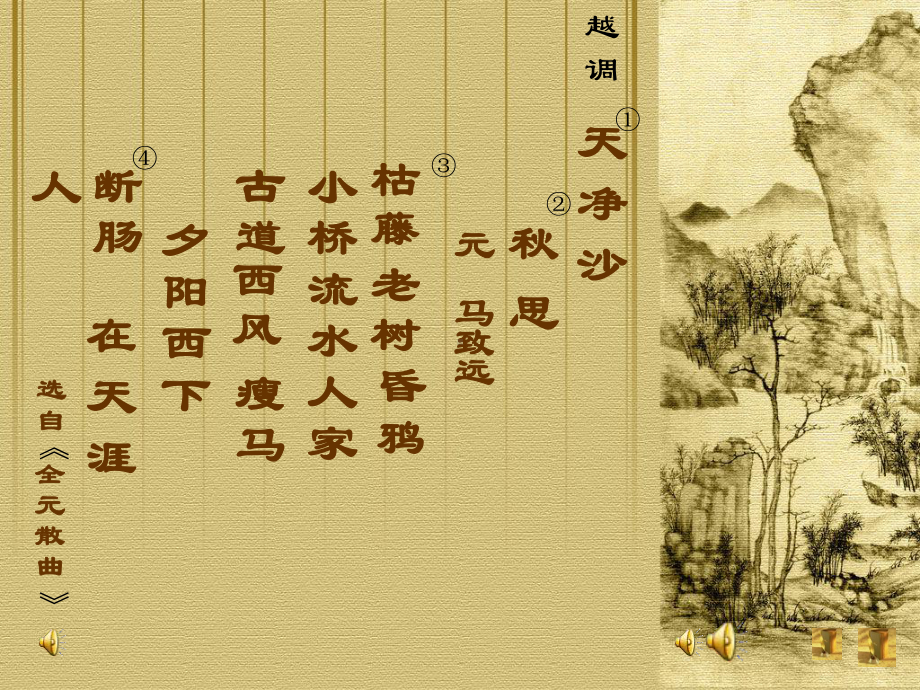 越调
天净沙①
秋思②
元 马致远
枯藤老树昏鸦③
小桥流水人家
古道西风瘦马
夕阳西下
断肠④ 在天涯
人
选自《全元散曲》